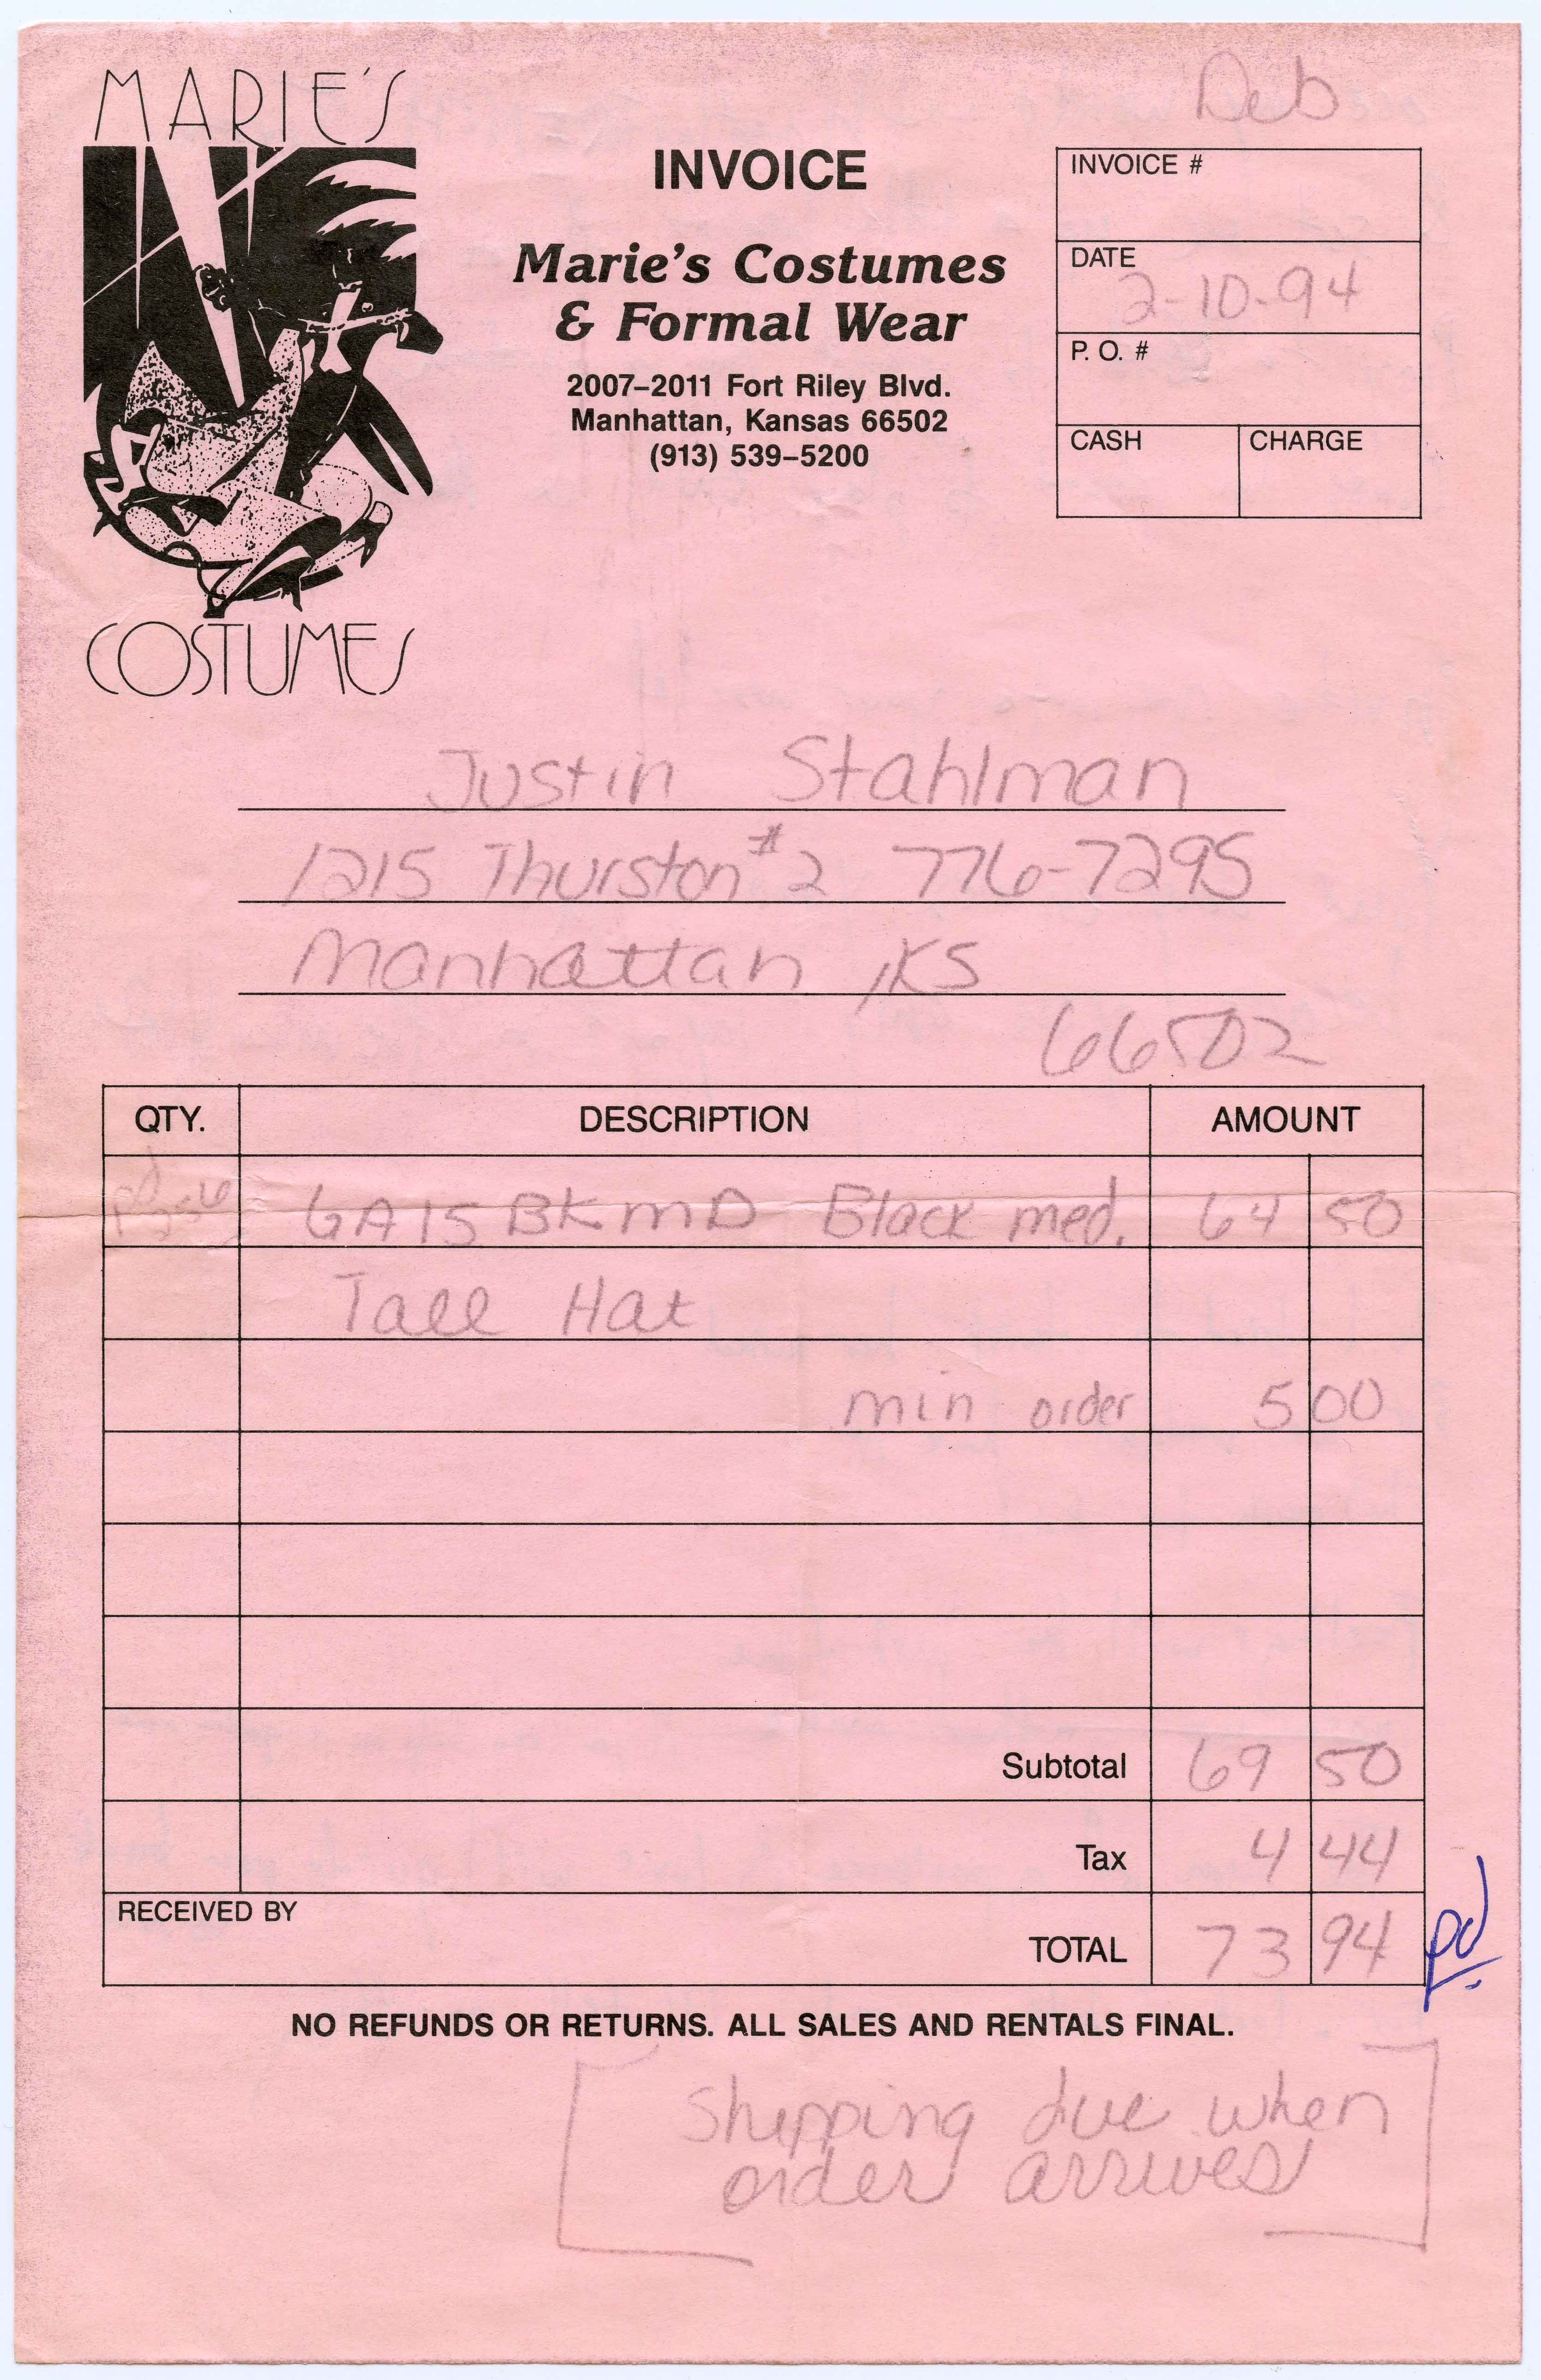 MARIE'S
COSTUMES
INVOICE
Marie's Costumes
& Formal Wear
2007–2011 Fort Riley Blvd.
Manhattan, Kansas 66502
(913) 539–5200
Deb
INVOICE #
DATE
2-10-94
P. O. #
CASH CHARGE
Justin Stahlman
1215 Thurston #2 776-7295
Manhattan, KS
66502
QTY. DESCRIPTION AMOUNT
pd GA15BKMD Black med. 64 50
Tall Hat
min order 5 00
Subtotal 69 50
Tax 4 44
RECEIVED BY
TOTAL 73 94 pd
NO REFUNDS OR RETURNS. ALL SALES AND RENTALS FINAL.
Shipping due when
order arrives